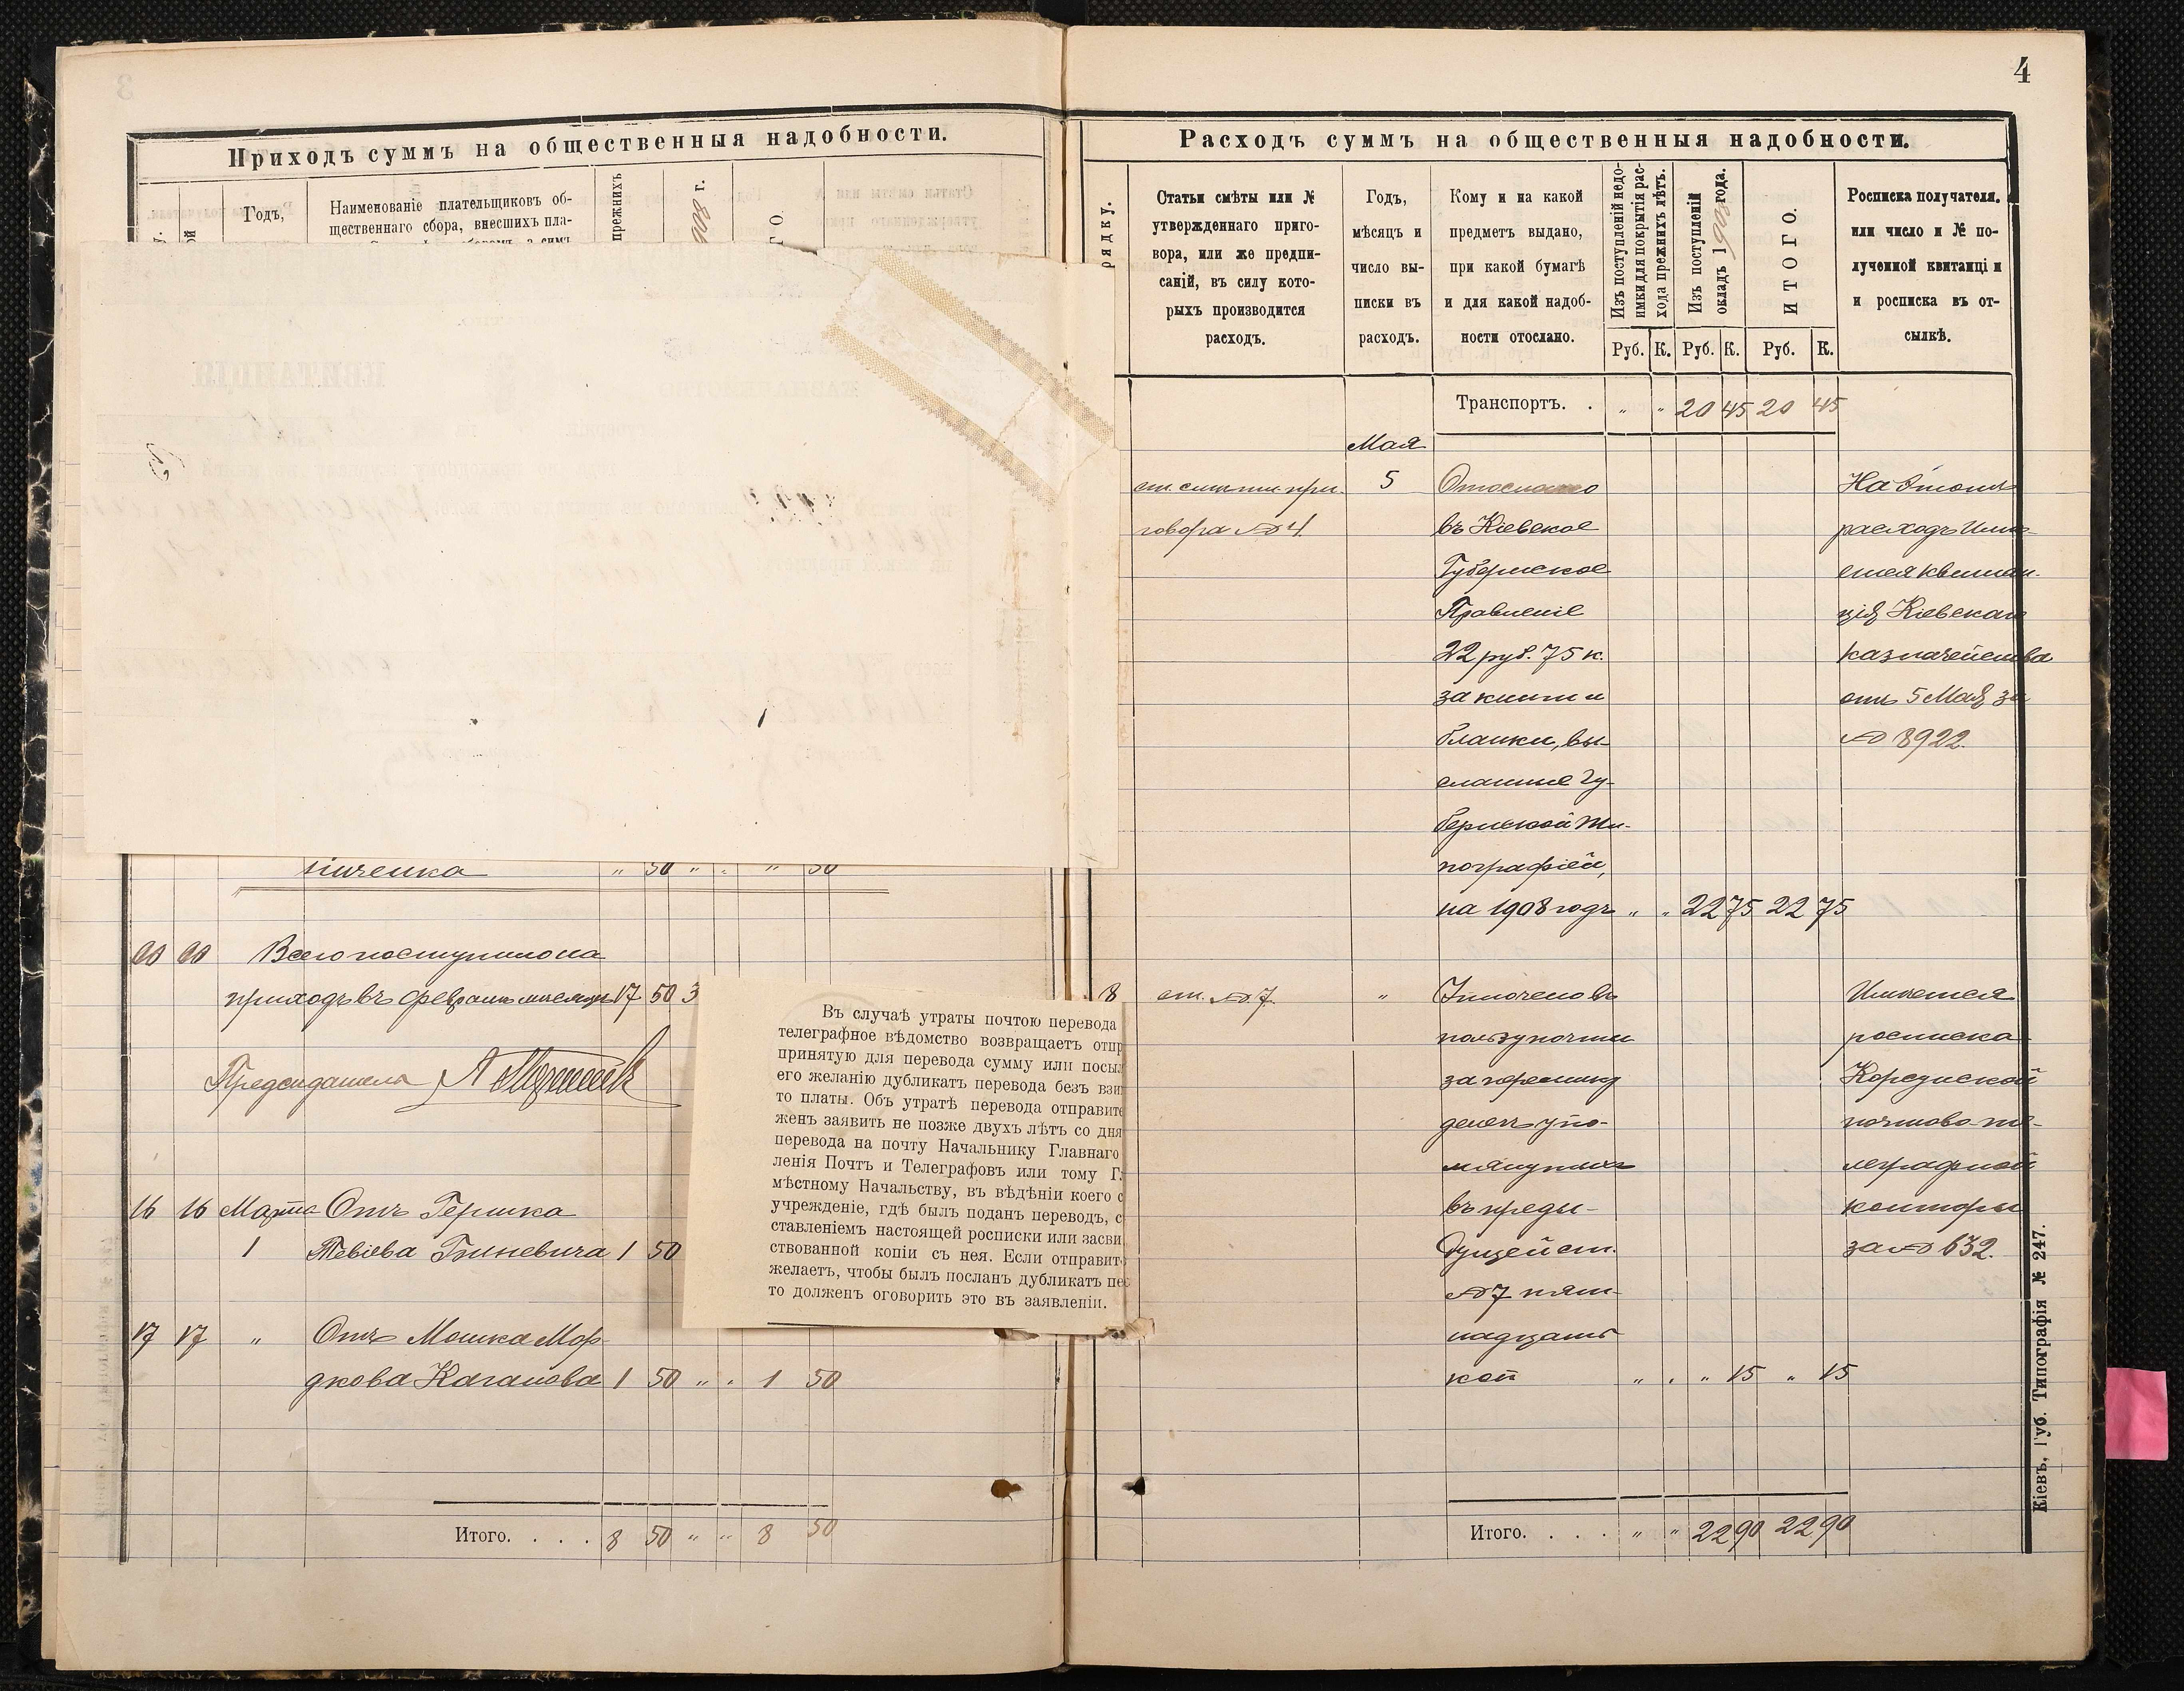 Приходъ суммъ на общественныя надобности.
Годъ,
Наименованіе плательщиковъ об-
щественнаго сбора, внесшихъ пла-
прежнихъ
908 г.
ниченка " 50 " " " 50
Всего поступило на
приходъ въ февралѣ мѣсяцѣ 17 50 3
Предсѣдатель
Въ случаѣ утраты почтою перевода
телеграфное вѣдомство возвращаетъ отпр
принятую для перевода сумму или посыл
его желанію дубликатъ перевода безъ взи
то платы. Объ утратѣ перевода отправите
женъ заявить не позже двухъ лѣтъ со дня
перевода на почту Начальнику Главнаго
ленія Почтъ и Телеграфовъ или тому Г
мѣстному Начальству, въ вѣдѣніи коего с
учрежденіе, гдѣ былъ поданъ переводъ, с
ставленіемъ настоящей росписки или засви
ствованной копіи съ нея. Если отправит
желаетъ, чтобы былъ посланъ дубликатъ пе
то долженъ оговорить это въ заявленіи.
16 16 Марта Отъ Гершка
1 Тевіева Гриневича 1 50
17 17 " Отъ Мошка Мор-
дкова Каганова 1 50 " " 1 50
Итого. . . . 8 50 " " 8 50
4
Расходъ суммъ на общественныя надобности.
рядку.
Статьи смѣты или №
утвержденнаго приго-
вора, или же предпи-
саній, въ силу кото-
рыхъ производится
расходъ.
Годъ,
мѣсяцъ и
число вы-
писки въ
расходъ.
Кому и на какой
предметъ выдано,
при какой бумагѣ
и для какой надоб-
ности отослано.
Изъ поступленій недо-
имки для покрытія рас-
хода прежнихъ лѣтъ.
Изъ поступленій
окладъ 1908 года.
ИТОГО.
Росписка получателя.
или число и № по-
лученной квитанціи
и росписка въ от-
сылкѣ.
Руб. К. Руб. К. Руб. К.
Транспортъ. . " " 20 45 20 45
Мая
5 Отослано На этотъ
говора № 4 въ Кіевское расходъ имѣ-
Губернское ется квитан-
Правленіе ція Кіевскаго
22 руб. 75 к. казначейства
за книги и отъ 5 Мая за
бланки, вы- № 8922.
сланные Гу-
бернской ти-
пографіей,
на 1908 годъ " " 22 75 22 75
8 ст. № 7. " Уплочено въ Имѣется
пользу почты росписка
за пересылку Корсунской
денегъ упо- почтово-те-
мянутыхъ леграфной
въ преды- конторы
дущей ст. за № 632.
№ 7 пят-
надцать
коп " " " 15 " 15
Итого. . . . " " 22 90 22 90
Кіевъ, Губ. Типографія № 247.